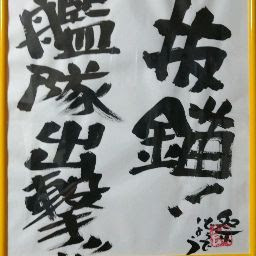 抜錨!
艦隊出撃!!